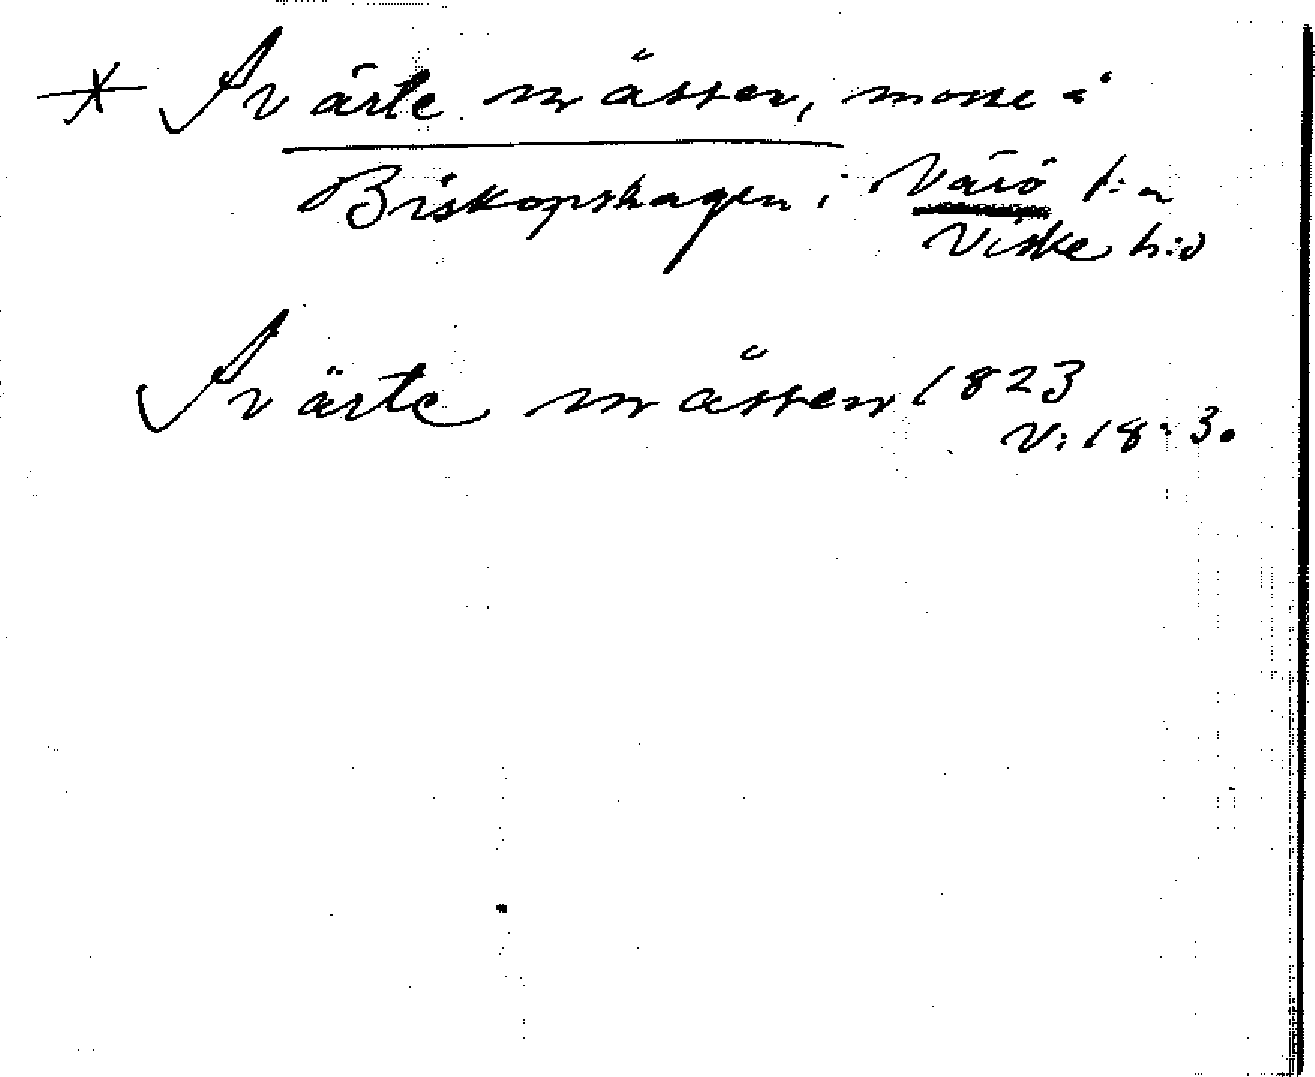 * Svärte måssen, mosse i
Biskopshagen i Värö s:n
Viske h:d
Svärte måssen 1823
V: 18: 3.